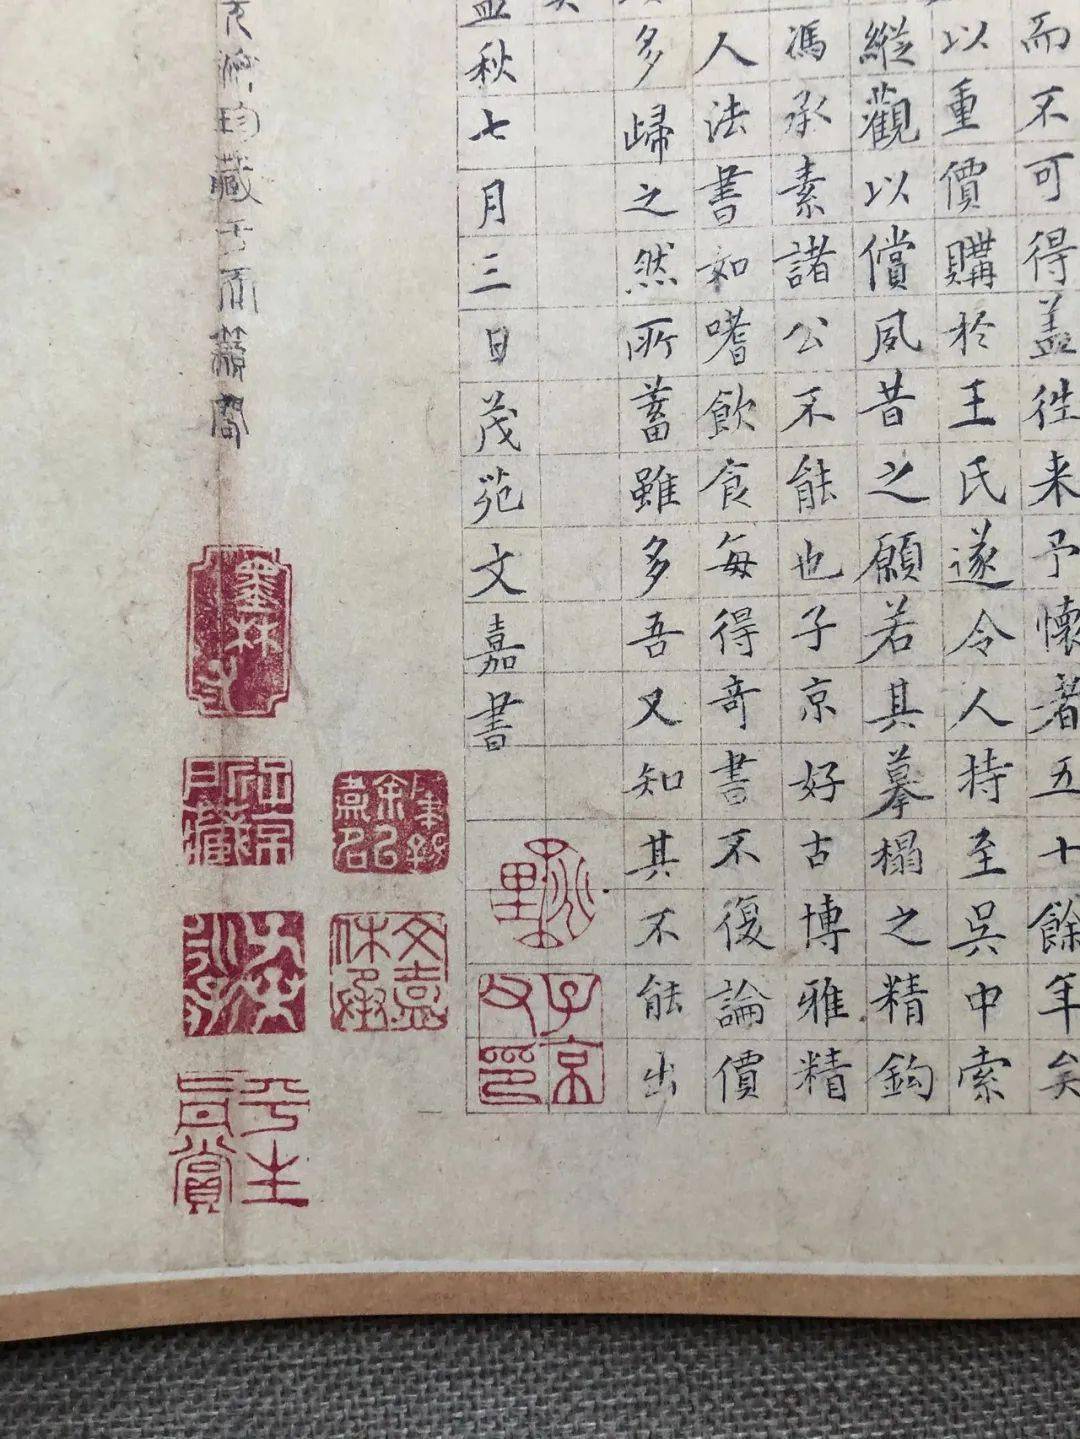 而不可得盖往来予懐者五十餘年矣
以重價購於王氏遂令人持至吳中索
縱觀以償夙昔之願若其摹榻之精鈎
馮承素諸公不能也子京好古博雅精
人法書如嗜飲食每得奇書不復論價
多歸之然所蓄雖多吾又知其不能出
秋七月三日茂苑文嘉書
子京父印
文嘉休承
珍藏于
墨林
平生真賞